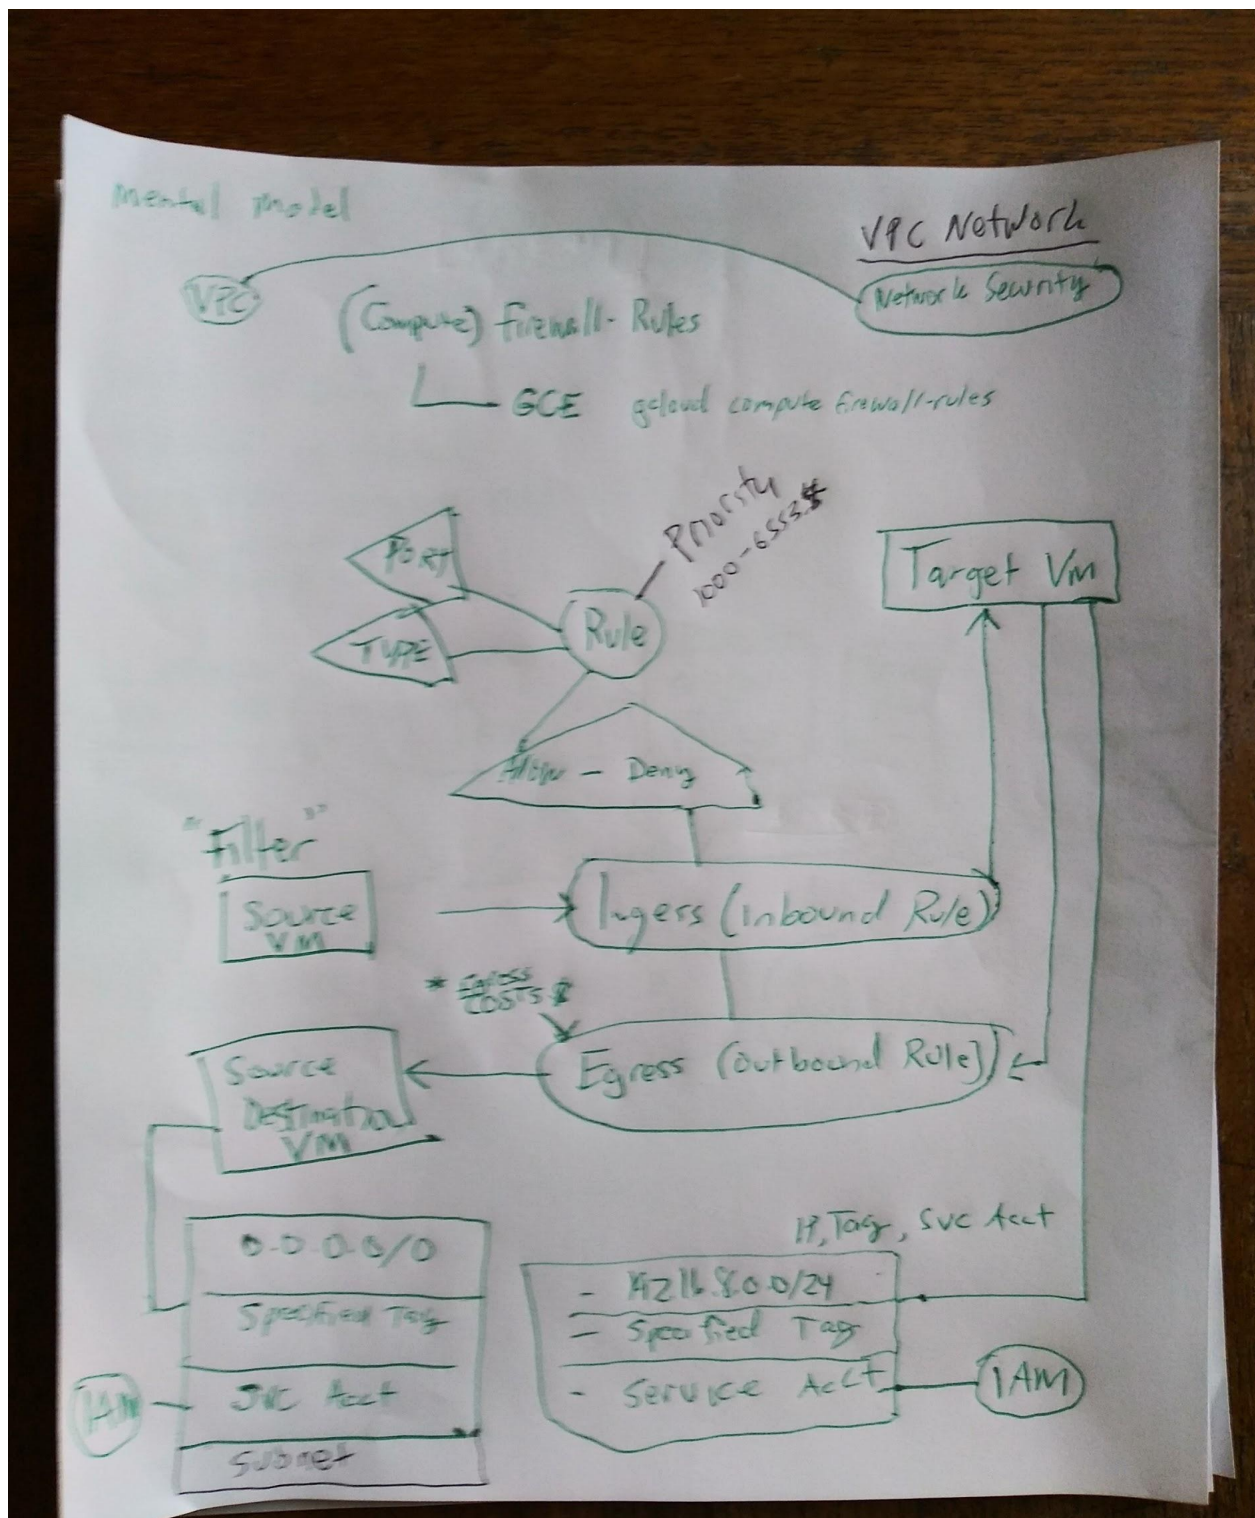 Mental Model
VPC Network
VPC
Network Security
(Compute) Firewall-Rules
GCE gcloud compute firewall-rules
Priority
PORT
TYPE
Rule
Target VM
Allow - Deny
"Filter"
Source
VM
Ingess (Inbound Rule)
* Egress
COSTS $
Egress (Outbound Rule)
Source
Destination
VM
IP, Tag, Svc Acct
0.0.0.0/0
Specified Tag
SVC Acct
Subnet
IAM
- Specified Tag
- Service Acct
IAM